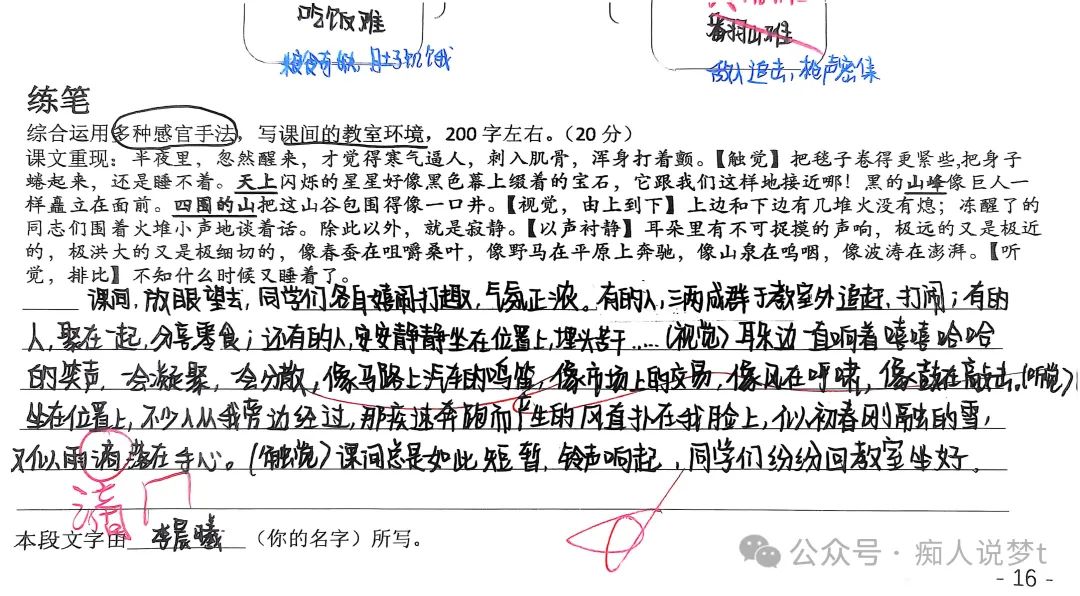 吃饭难
翻山难
敌人追击，枪声密集
练笔
综合运用多种感官手法，写课间的教室环境，200 字左右。（20 分）
课文重现：半夜里，忽然醒来，才觉得寒气逼人，刺入肌骨，浑身打着颤。【触觉】把毯子卷得更紧些,把身子
蜷起来，还是睡不着。天上闪烁的星星好像黑色幕上缀着的宝石，它跟我们这样地接近哪！黑的山峰像巨人一
样矗立在面前。四围的山把这山谷包围得像一口井。【视觉，由上到下】上边和下边有几堆火没有熄；冻醒了的
同志们围着火堆小声地谈着话。除此以外，就是寂静。【以声衬静】耳朵里有不可捉摸的声响，极远的又是极近
的，极洪大的又是极细切的，像春蚕在咀嚼桑叶，像野马在平原上奔驰，像山泉在呜咽，像波涛在澎湃。【听
觉，排比】不知什么时候又睡着了。
课间，放眼望去，同学们各自嬉闹打趣，气氛正浓。有的人，三两成群于教室外追赶，打闹；有的
人，聚在一起，分享零食；还有的人，安安静静坐在位置上，埋头苦干……（视觉）耳朵边一直响着嘻嘻哈哈
的笑声，一会凝聚，一会分散，像马路上汽车的鸣笛，像市场上的交易，像风在呼啸，像鼓在敲击。（听觉）
坐在位置上，不少人从我旁边经过，那疾速奔跑而产生的风直扑在我脸上，似初春刚融的雪，
又似雨滴落在手心。（触觉）课间总是如此短暂，铃声响起，同学们纷纷回教室坐好。
本段文字由 李晨曦 （你的名字）所写。
公众号·痴人说梦t
- 16 -